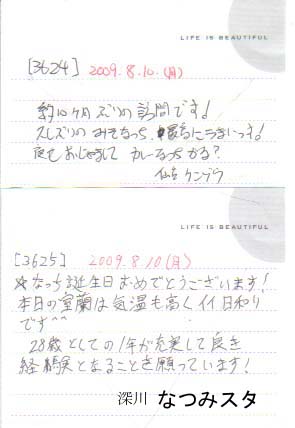 LIFE IS BEAUTIFUL
[3624] 2009.8.10.(月)
約10ヶ月ズリの訪問です!
久しズリのみそなっち、最高にうまいっす!
夜もおじゃまして カレーなっちかる?
仙台 ケンプラ
LIFE IS BEAUTIFUL
[3625] 2009.8.10(月)
☆なっち誕生日おめでとうございます!
本日の室蘭は気温も高くイイ日和り
です^^
28歳としての1年が充実して良き
経験となることを願っています!
深川 なつみスタ